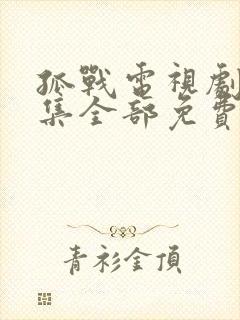 孤戰電視劇
集全部免費
青衫金頂